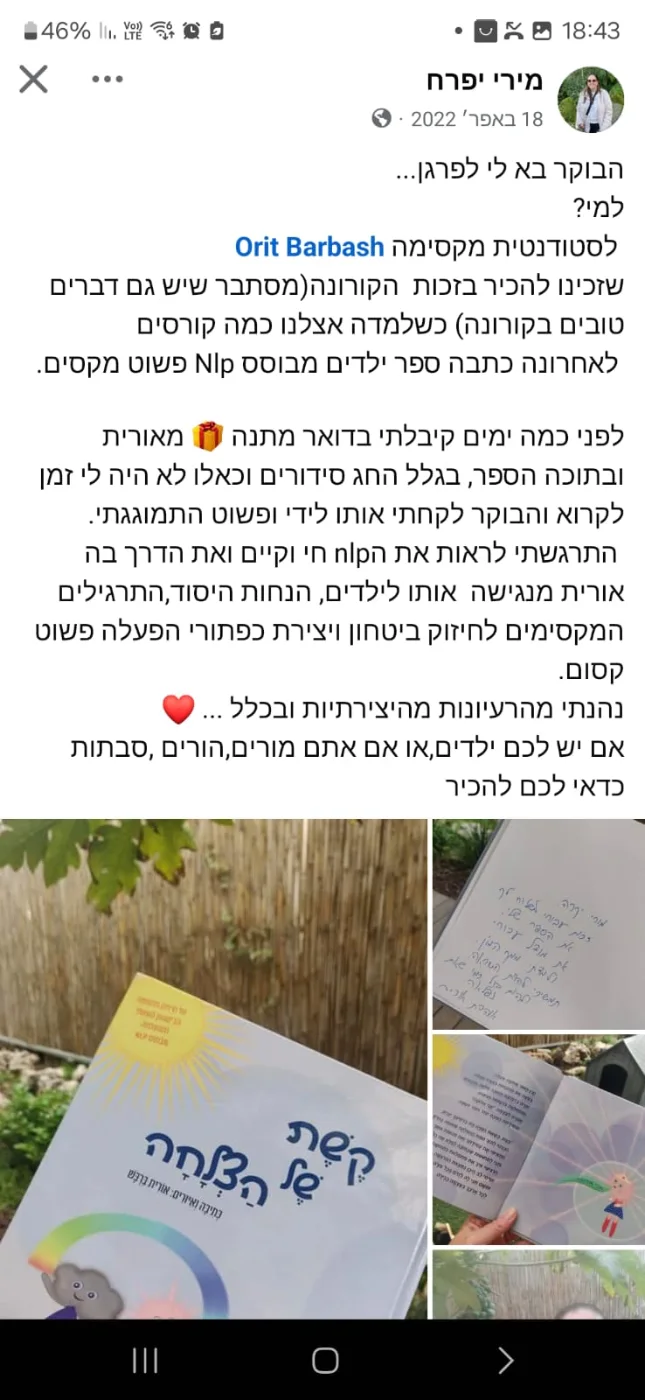 46%
Vo)) LTE
18:43
מירי יפרח
18 באפר׳ 2022
הבוקר בא לי לפרגן...
למי?
לסטודנטית מקסימה Orit Barbash
שזכינו להכיר בזכות הקורונה(מסתבר שיש גם דברים
טובים בקורונה) כשלמדה אצלנו כמה קורסים
לאחרונה כתבה ספר ילדים מבוסס Nlp פשוט מקסים.
לפני כמה ימים קיבלתי בדואר מתנה 🎁 מאורית
ובתוכה הספר, בגלל החג סידורים וכאלו לא היה לי זמן
לקרוא והבוקר לקחתי אותו לידי ופשוט התמוגגתי.
התרגשתי לראות את הnlp חי וקיים ואת הדרך בה
אורית מנגישה אותו לילדים, הנחות היסוד,התרגילים
המקסימים לחיזוק ביטחון ויצירת כפתורי הפעלה פשוט
קסום.
נהנתי מהרעיונות מהיצירתיות ובכלל ... ❤️
אם יש לכם ילדים,או אם אתם מורים,הורים ,סבתות
כדאי לכם להכיר
קֶשֶׁת
שֶׁל
הַצְלָחָה
כתיבה ואיורים: אורית ברבש